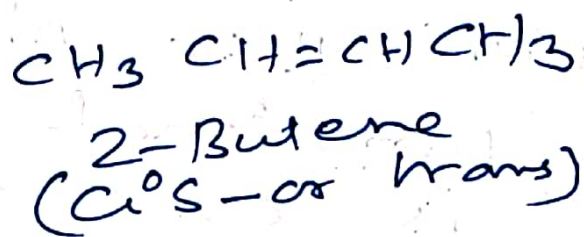 CH3 CH=CH CH3
2-Butene
(Cis-or trans)